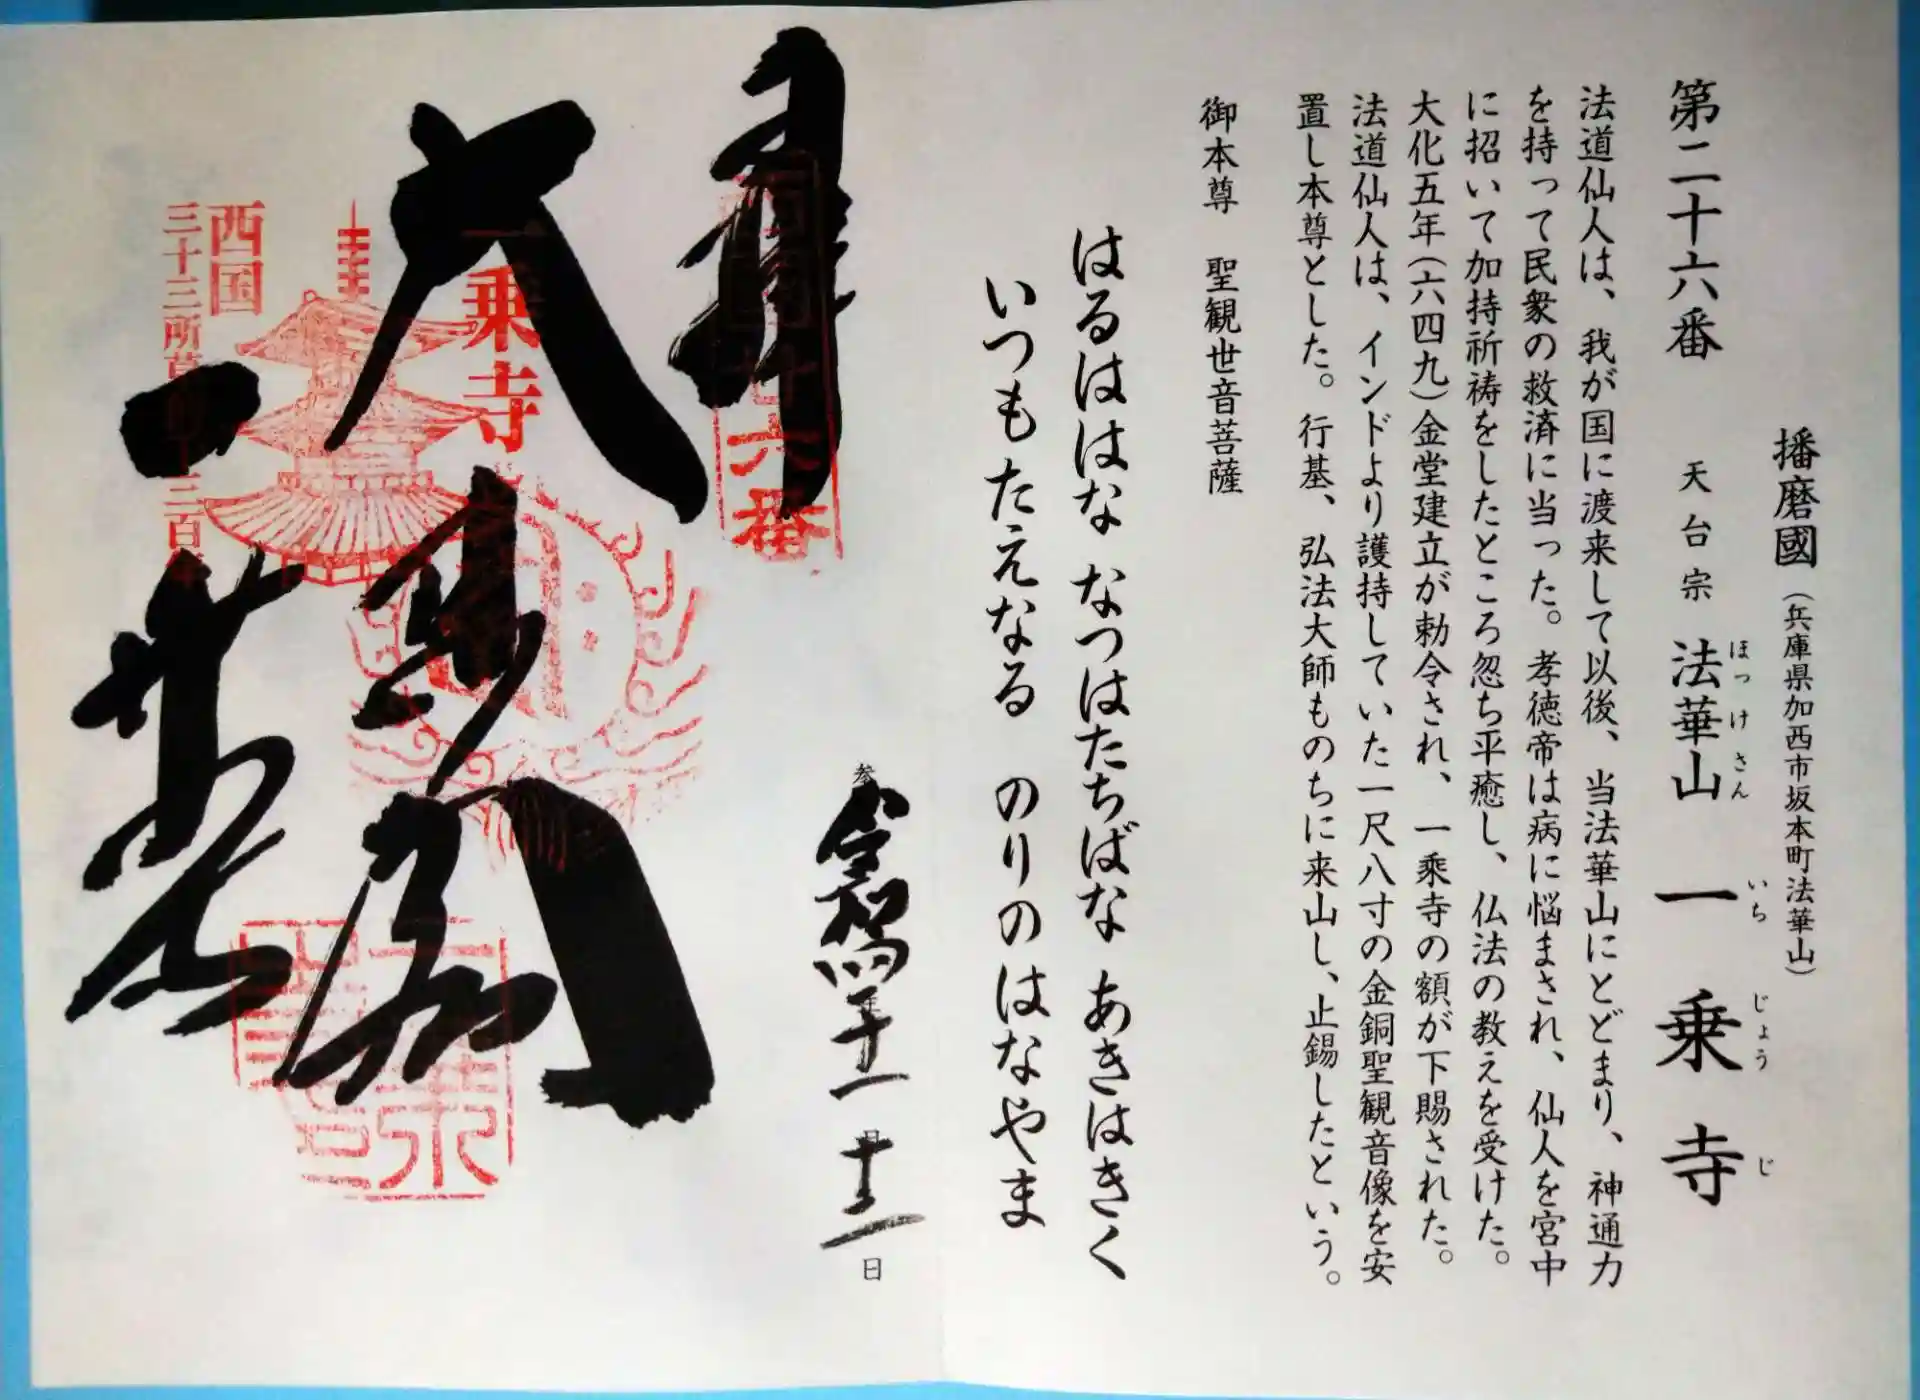 播磨國（兵庫県加西市坂本町法華山）
第二十六番　天台宗　法華山　一乗寺
ほっけさん　いちじょうじ
法道仙人は、我が国に渡来して以後、当法華山にとどまり、神通力
を持って民衆の救済に当った。孝徳帝は病に悩まされ、仙人を宮中
に招いて加持祈祷をしたところ忽ち平癒し、仏法の教えを受けた。
大化五年（六四九）金堂建立が勅令され、一乗寺の額が下賜された。
法道仙人は、インドより護持していた一尺八寸の金銅聖観音像を安
置し本尊とした。行基、弘法大師ものちに来山し、止錫したという。
御本尊　聖観世音菩薩
はるははな　なつはたちばな　あきはきく
いつもたえなる　のりのはなやま
令和四年十一月十二日
六番
大悲閣
一乗寺
一乗寺
西国
三十三所草創千三百